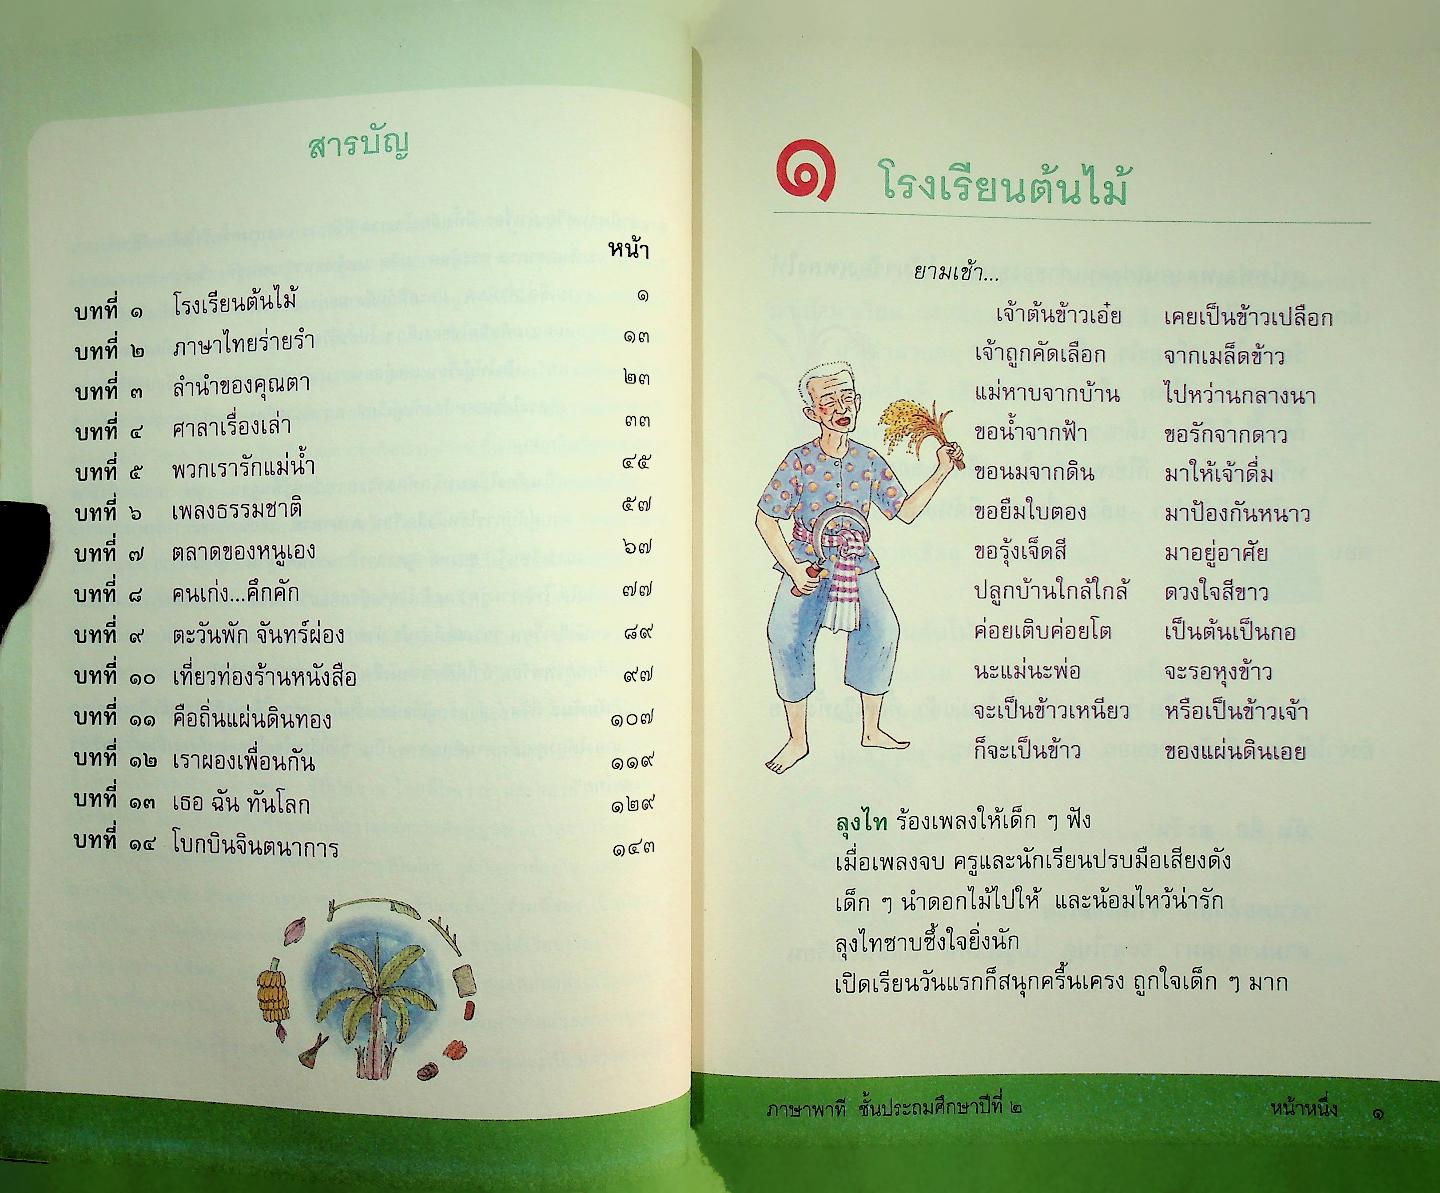 สารบัญ
หน้า
บทที่ ๑ โรงเรียนต้นไม้ ๑
บทที่ ๒ ภาษาไทยร่ายรำ ๑๓
บทที่ ๓ ลำนำของคุณตา ๒๓
บทที่ ๔ ศาลาเรื่องเล่า ๓๓
บทที่ ๕ พวกเรารักแม่น้ำ ๔๕
บทที่ ๖ เพลงธรรมชาติ ๕๗
บทที่ ๗ ตลาดของหนูเอง ๖๗
บทที่ ๘ คนเก่ง...คึกคัก ๗๗
บทที่ ๙ ตะวันพัก จันทร์ผ่อง ๘๙
บทที่ ๑๐ เที่ยวท่องร้านหนังสือ ๙๗
บทที่ ๑๑ คือถิ่นแผ่นดินทอง ๑๐๗
บทที่ ๑๒ เราผองเพื่อนกัน ๑๑๙
บทที่ ๑๓ เธอ ฉัน ทันโลก ๑๒๙
บทที่ ๑๔ โบกบินจินตนาการ ๑๔๓
๑ โรงเรียนต้นไม้
ยามเช้า...
เจ้าต้นข้าวเอ๋ย เคยเป็นข้าวเปลือก
เจ้าถูกคัดเลือก จากเมล็ดข้าว
แม่หาบจากบ้าน ไปหว่านกลางนา
ขอน้ำจากฟ้า ขอรักจากดาว
ขอนมจากดิน มาให้เจ้าดื่ม
ขอยืมใบตอง มาป้องกันหนาว
ขอรุ้งเจ็ดสี มาอยู่อาศัย
ปลูกบ้านใกล้ใกล้ ดวงใจสีขาว
ค่อยเติบค่อยโต เป็นต้นเป็นกอ
นะแม่นะพ่อ จะรอหุงข้าว
จะเป็นข้าวเหนียว หรือเป็นข้าวเจ้า
ก็จะเป็นข้าว ของแผ่นดินเอย
ลุงไท ร้องเพลงให้เด็ก ๆ ฟัง
เมื่อเพลงจบ ครูและนักเรียนปรบมือเสียงดัง
เด็ก ๆ นำดอกไม้ไปให้ และน้อมไหว้น่ารัก
ลุงไทซาบซึ้งใจยิ่งนัก
เปิดเรียนวันแรกก็สนุกครื้นเครง ถูกใจเด็ก ๆ มาก
ภาษาพาที ชั้นประถมศึกษาปีที่ ๒ หน้าหนึ่ง ๑